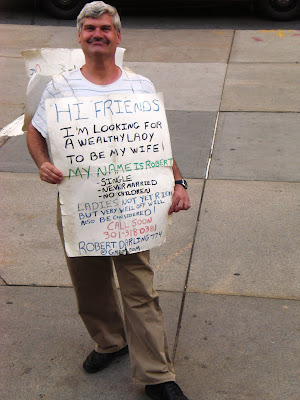 HI FRIENDS
I'M LOOKING FOR
A WEALTHY LADY
TO BE MY WIFE!
MY NAME IS ROBERT
-SINGLE
-NEVER MARRIED
-NO CHILDREN
LADIES NOT YET RICH
BUT VERY WELL OFF WILL
ALSO BE CONSIDERED!
CALL SOON
301-318-0381
ROBERTDARLING774
@GMAIL.COM